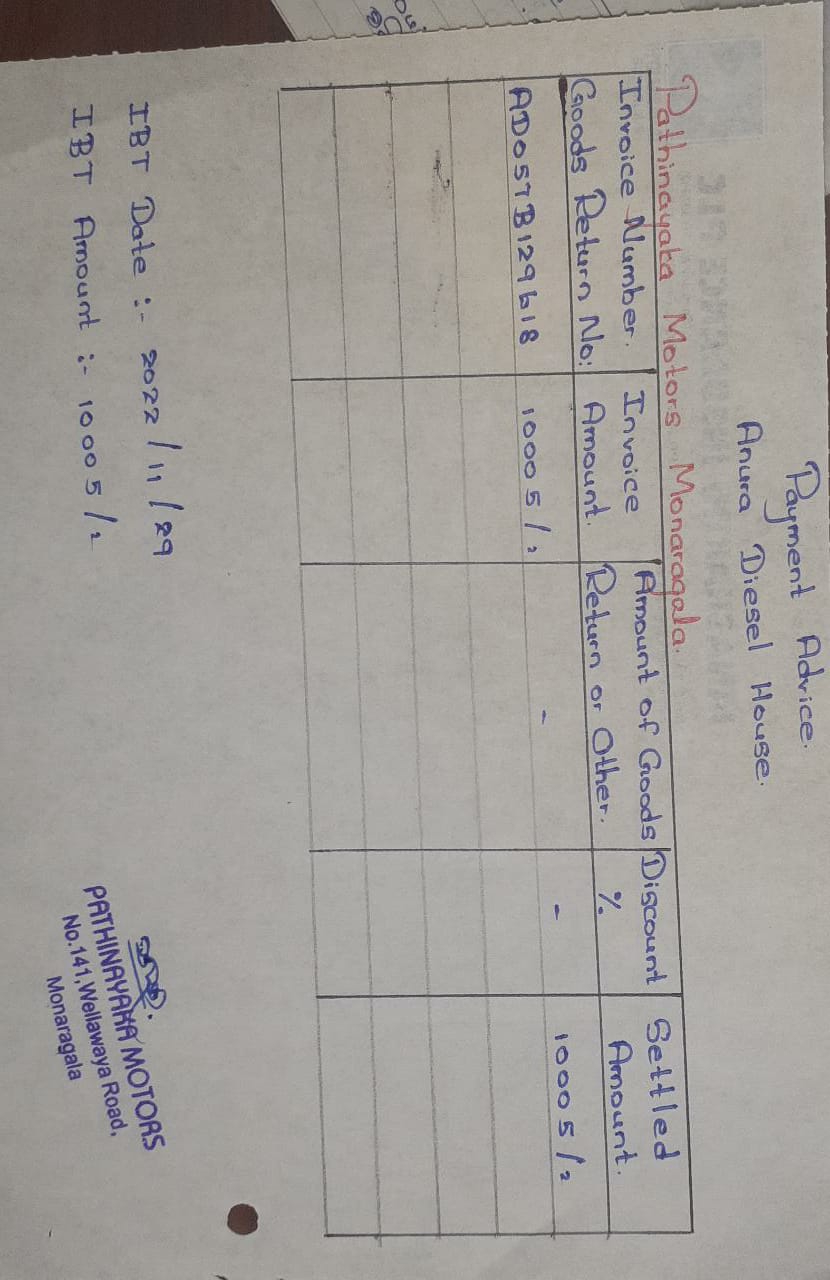 Payment Advice.
Anura Diesel House.
Pathinayaka Motors Monaragala.
Invoice Number. Invoice Amount of Goods Discount Settled
Goods Return No: Amount. Return or Other. % Amount.
AD057B129618 10005/2 - - 10005/2
IBT Date :- 2022/11/29
IBT Amount :- 10005/2
PATHINAYAKA MOTORS
No.141, Wellawaya Road,
Monaragala